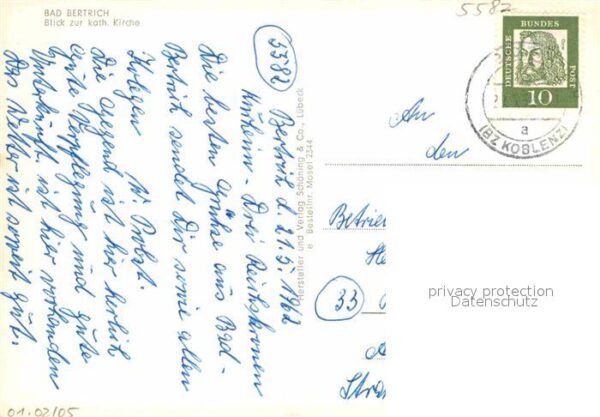 BAD BERTRICH
Blick zur kath. Kirche
5582
5582
Bertrich d. 21.5.1962
Kurheim - Drei Reichskronen
Die besten Grüße aus Bad-
Bertrich sendet Dir sowie allen
Kolegen W. Probst.
Die Gegend ist hier herlich
gute Verpflegung und gute
Unterkunft, ist hier vorhanden
Das Wetter ist soweit gut.
Hersteller und Verlag Schöning & Co., Lübeck
Bestellnr. Mosel 2344
DEUTSCHE BUNDES POST
10
a
(BZ KOBLENZ)
An
den
Betrie
33
Stra
privacy protection
Datenschutz
01.02/05